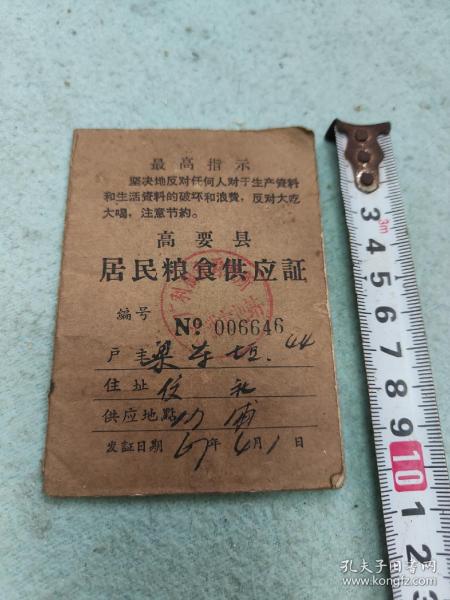 最高指示
坚决地反对任何人对于生产資料
和生活資料的破坏和浪費，反对大吃
大喝，注意节約。
高要县
居民粮食供应証
編号 № 006646
户主 梁
住址
供应地點
发証日期 67年 6月1日
3m
3
4
5
6
7
8
9
10
1
2
3
孔夫子旧书网
www.kongfz.com